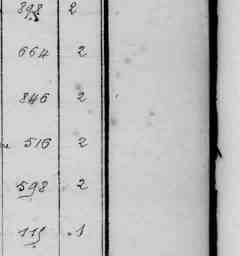 898 2
664 2
846 2
516 2
598 2
115 1